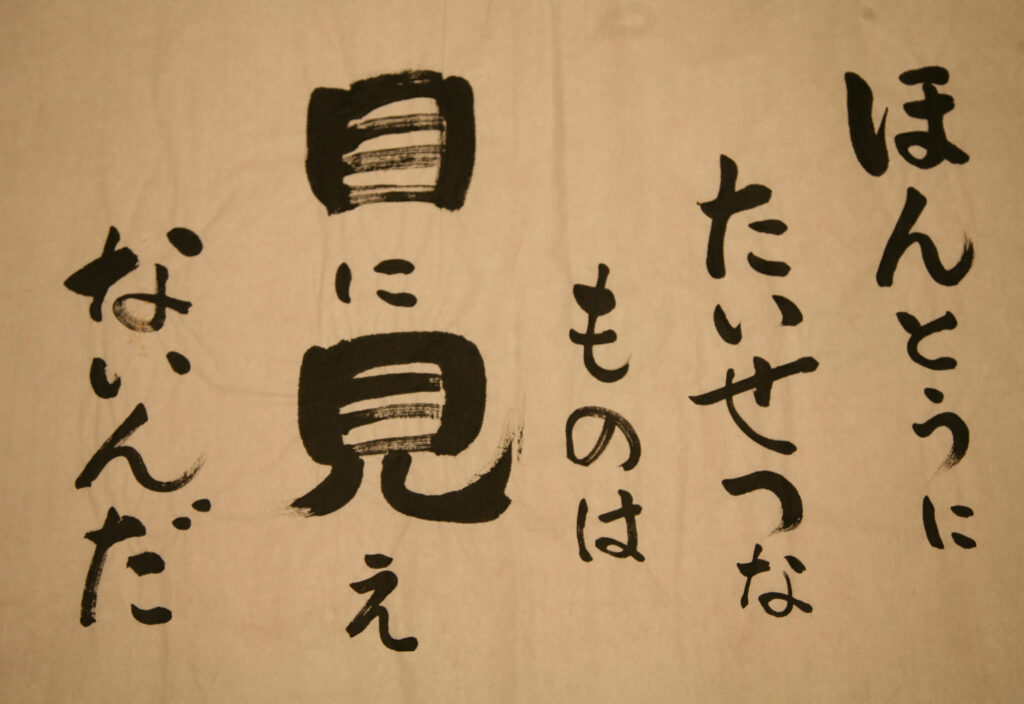 ほんとうに
たいせつな
ものは
目に見え
ないんだ